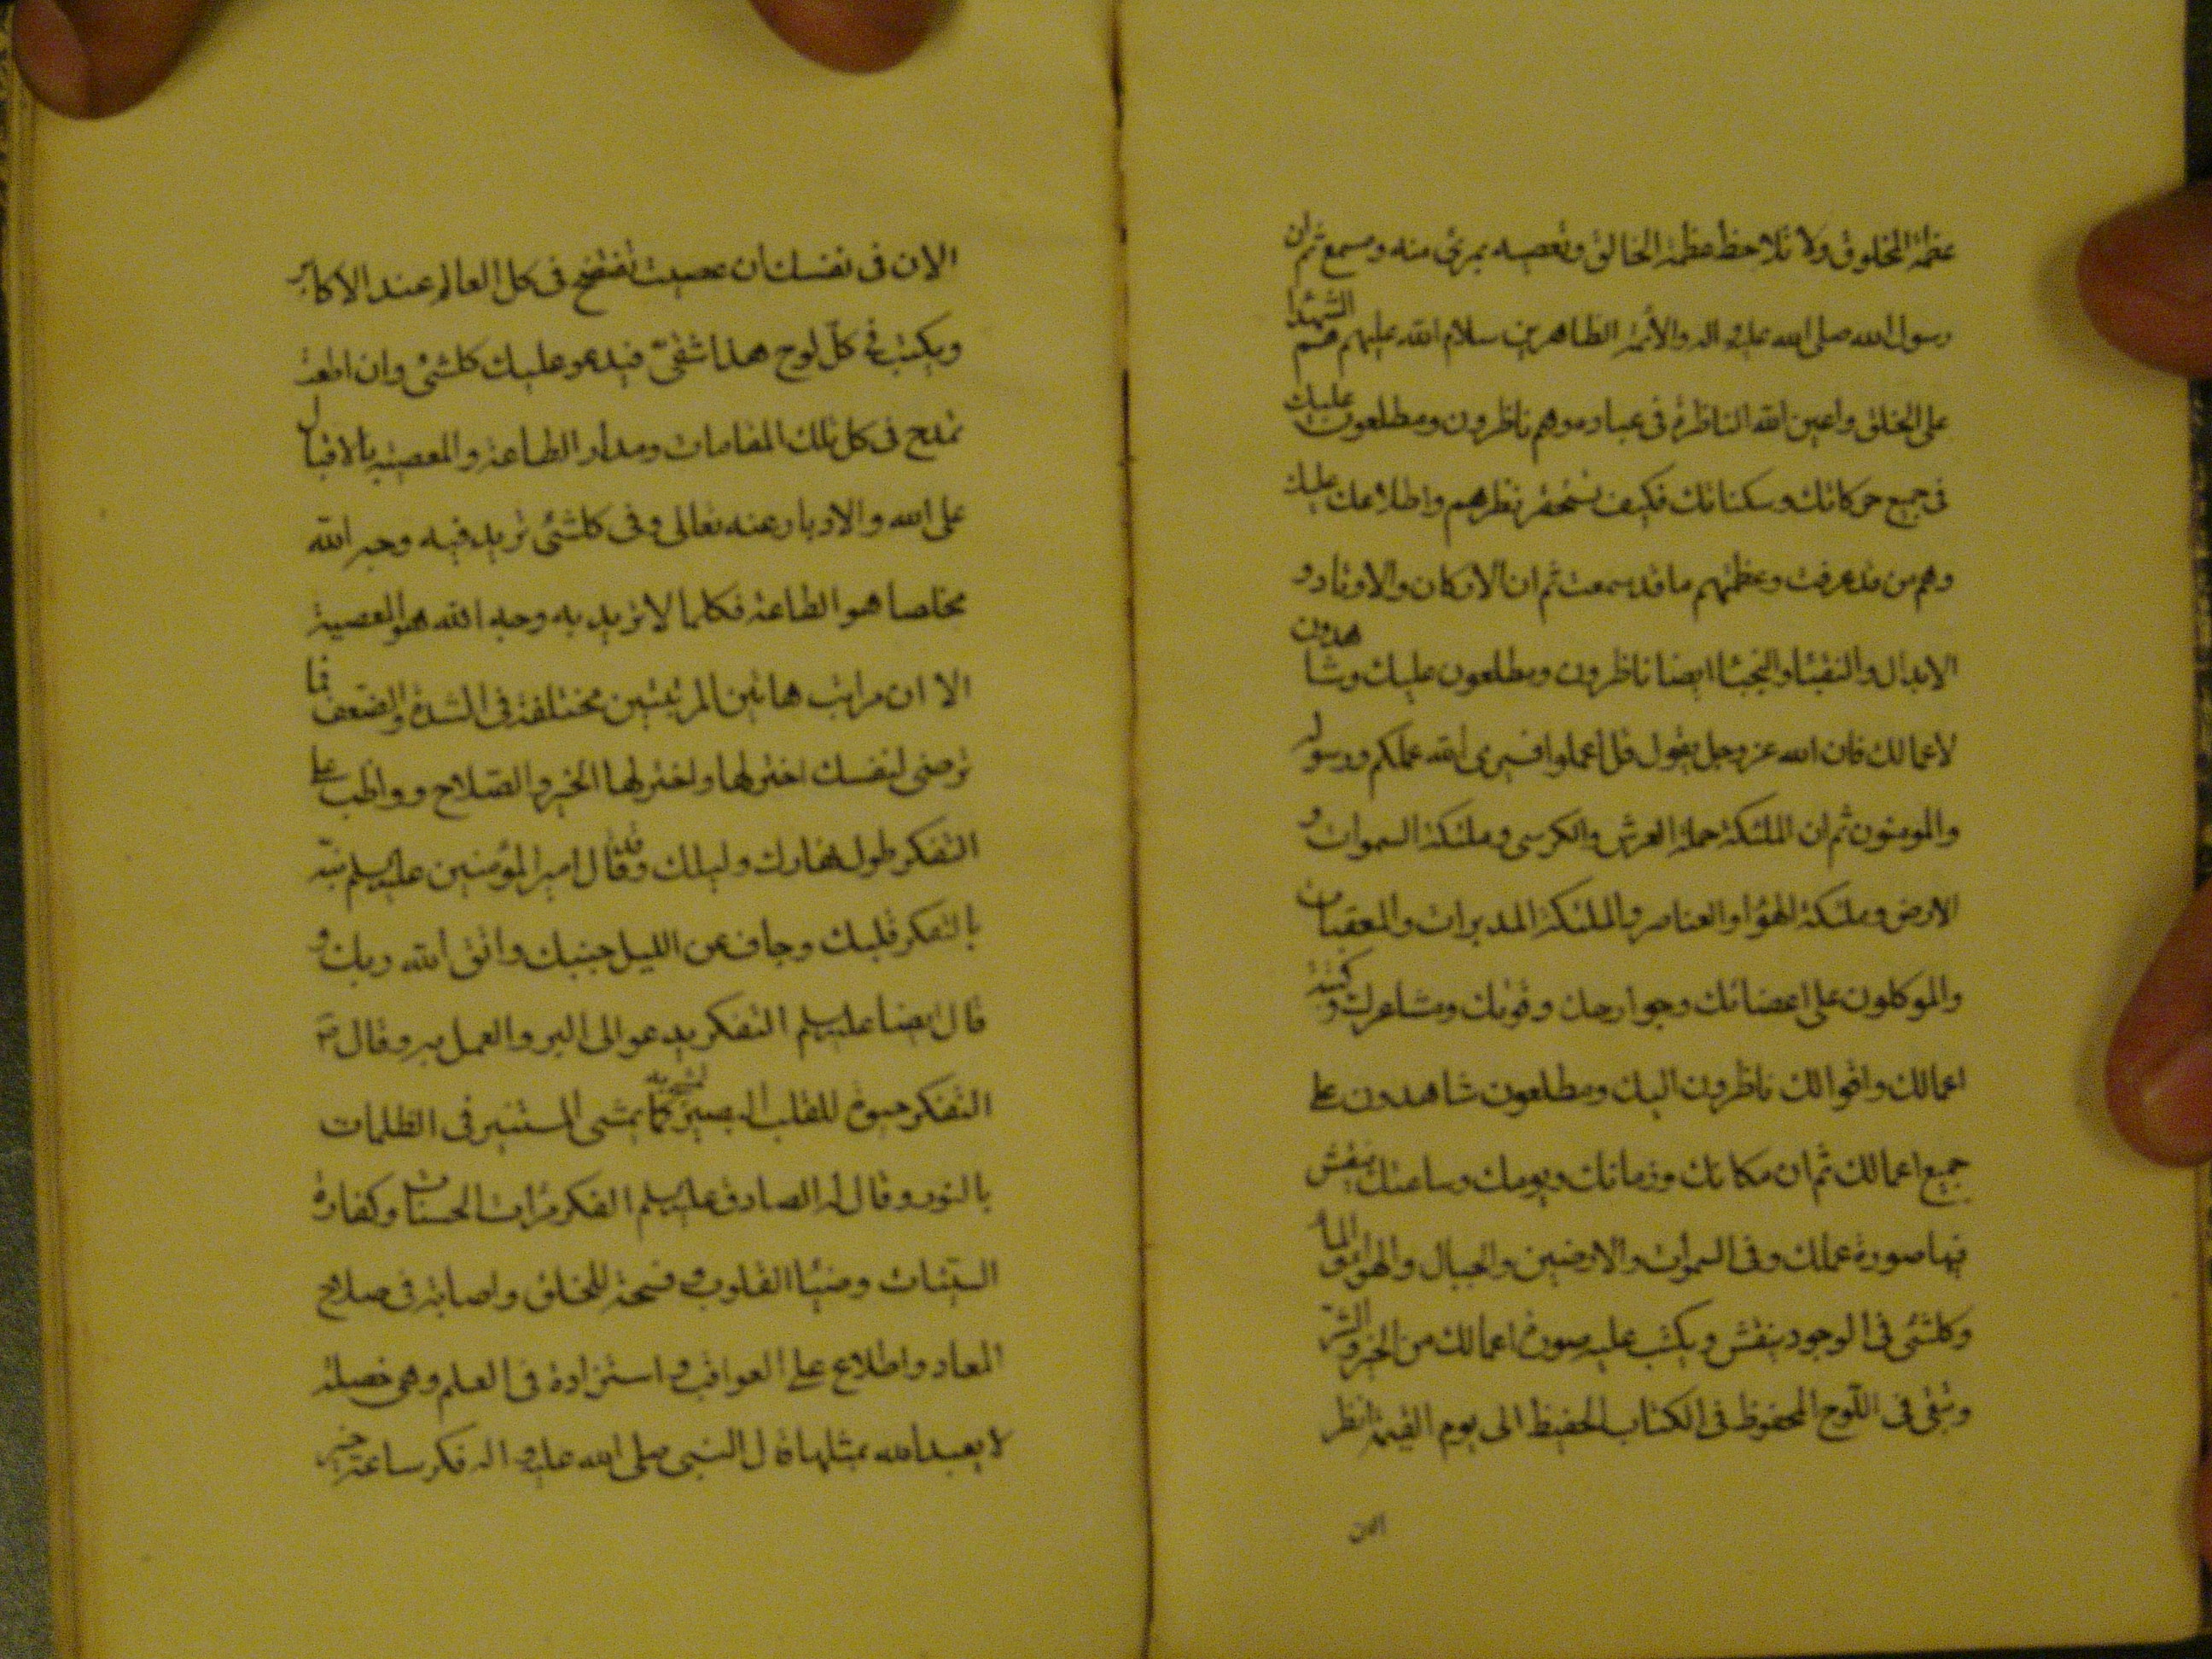 عظمة المخلوق ولا تلاحظ عظمة الخالق وتعصيه بمرئ منه ومسمع ثم ان
رسول الله صلى الله عليه واله والأئمة الطاهرين سلام الله عليهم هم الشهدا
على الخلق واعين الله الناظرة فى عباده وهم ناظرون ومطلعون عليك
فى جميع حركاتك وسكناتك فكيف تستحقر نظرهم واطلاعك عليك
وهم من قد عرفت وعظمتهم ما قد سمعت ثم ان الاركان والاوتاد و
الابدال والنقبا والنجبا ايضا ناظرون ومطلعون عليك وشاهدون
لاعمالك فان الله عز وجل يقول قل اعملوا فسيرى الله عملكم ورسوله
والمومنون ثم ان الملئكة حملة العرش والكرسى وملئكة السموات و
الارض وملئكة الهوا والعناصر والملئكة المدبرات والمعقبات
والموكلون على اعضائك وجوارحك وقوتك ومشاعرك وكتبة
اعمالك واقوالك ناظرون اليك ومطلعون شاهدون على
جميع اعمالك ثم ان مكانك وزمانك ويومك وساعتك ينقش
فيها صورة عملك وفى السموات والارضين والجبال والهواء والماء
وكلشئ فى الوجود ينقش ويكتب عليه صورة اعمالك من الخير والشر
وتبقى فى اللوح المحفوظ فى الكتاب الحفيظ الى يوم القيمة انظر
الان
الان فى نفسك ان عصيت تفتضح فى كل العالم عند الاكابر
ويكتب فى كل لوح هذا شقىّ فيدعو عليك كلشئ وان اطعت
تمدح فى كل تلك المقامات ومدار الطاعة والمعصية بالاقبال
على الله والادبار عنه تعالى وفى كلشئ تريد فيه وجه الله
مخلصا هو الطاعة فكلما لا تريد به وجه الله هو المعصية
الا ان مراتب هاتين المرتبتين مختلفة فى الشدة والضعف فما
ترضى لنفسك اختر لها واختر لها الخير والصلاح وواظب على
التفكر طول نهارك وليلك فقد قال امير المؤمنين عليه السلم نبّه
بالتفكر قلبك وجاف عن الليل جنبك واتق الله ربك و
قال ايضا عليه السلم التفكر يدعو الى البر والعمل به وقال
التفكر حيوة للقلب البصير كما يمشى المستنير فى الظلمات
بالنور وقال الصادق عليه السلم الفكر مرات الحسنات وكفارة
السيئات وضيا القلوب وفسحة للخلق واصابة فى صلاح
المعاد واطلاع على العواقب واستزادة فى العلم وهى خصلة
لا يعبد الله بمثلها قال النبى صلى الله عليه واله فكر ساعة خير